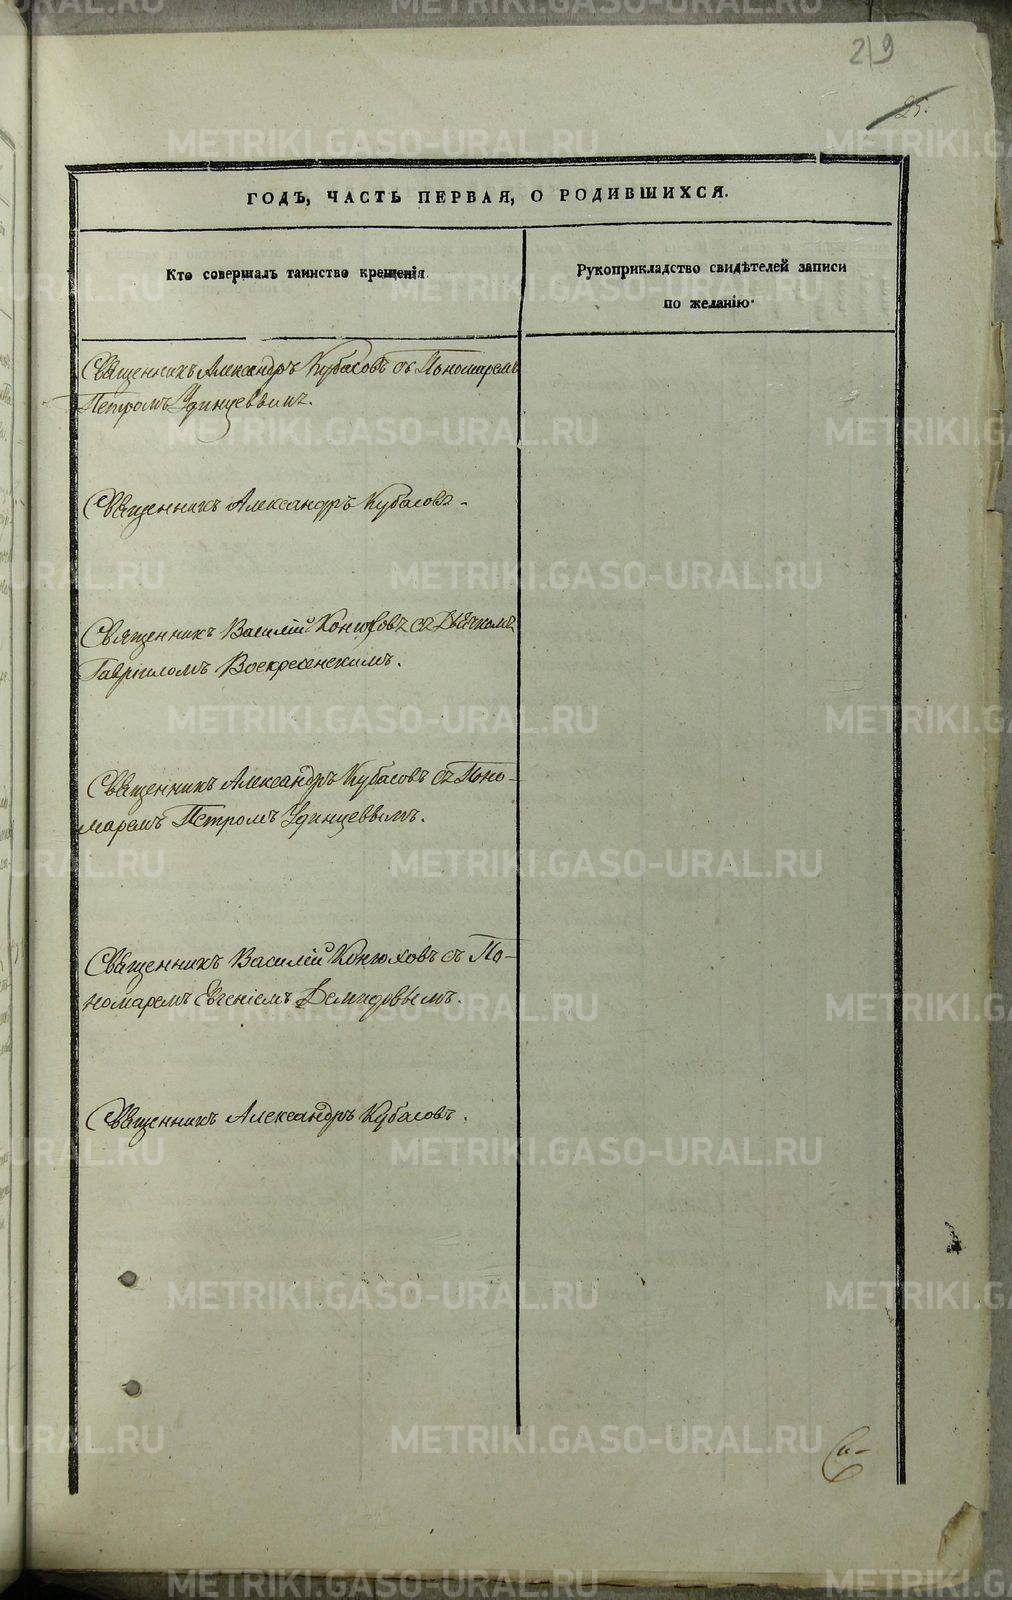 219
25.
ГОДЪ, ЧАСТЬ ПЕРВАЯ, О РОДИВШИХСЯ.
Кто совершалъ таинство крещенія.
Рукоприкладство свидѣтелей записи
по желанію.
Священникъ Александръ Кубасовъ съ Пономаремъ
Петромъ Удинцевымъ.
Священникъ Александръ Кубасовъ.
Священникъ Василій Конюховъ съ Дьячкомъ
Гавріиломъ Воскресенскимъ.
Священникъ Александръ Кубасовъ съ Поно-
маремъ Петромъ Удинцевымъ.
Священникъ Василій Конюховъ съ По-
номаремъ Евгеніемъ Демидовымъ.
Священникъ Александръ Кубасовъ.
METRIKI.GASO-URAL.RU